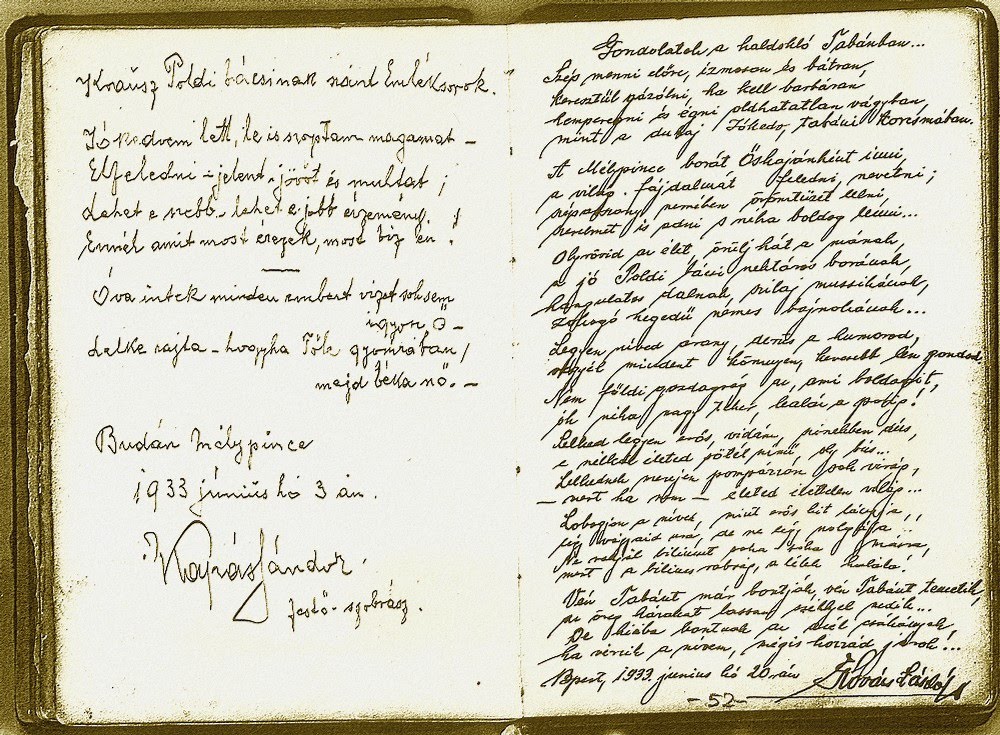 Krausz Poldi bácsinak szánt Emléksorok.
Jó kedvem lett, le is szoptam magamat –
Elfeledni – jelent – jövőt és multat ;
Lehet e szebb – lehet e jobb érzemény.
Ennél amit most érezek, most biz én !
Óva intek minden embert vizet sohsem
igyon Ő –
Lelke rajta – hogyha Tőle gyomrában,
majd béka nő. –
Budán Mélypince
1933 június hó 3 án.
Kapás Sándor
festő - szobrász.
Gondolatok a haldokló Tabánban...
Szép menni előre, izmosan és bátran,
keresztül gázolni, ha kell barbáran
hemperegni és égni oldhatatlan vágyban,
mint a duhaj Jókedv, tabáni korcsmában.
A Mélypince borát Őshajánként inni,
a világ fájdalmát feledni, nevetni ;
szemében örömtüzet lelni,
szerelmet is adni s néha boldog lenni...
Oly rövid az élet, örülj hát a mának,
a jó Poldi bácsi nektáros borának,
hangulatos dalnak, szilaj muzsikának,
zokogó hegedű nemes bajnokának...
Legyen szived arany, derüs a humorod,
végy mindent könnyen, kevesebb lesz gondod.
Nem földi gazdagság az, ami boldogit,
óh néha nagy teher, lealáz a profit!
Lelked legyen erős, vidám, szivedben dés,
e nélkül életed sötét szinű, oly bús...
Lelkednek mezején pompázzon sok virág,
– mert ha nem – életed élettelen világ...
Lobogjon a szived, mint erős hit lángja,
légy vágyaid ura, de ne légy szolgája...
Ne rakjál bilincset soha másra,
mert a bilincs rabság, a lélek halála!
Vén Tabánt már bontják, vén Tabánt temetik,
az öreg házakat lassan széllyel szedik...
De hiába bontanak az acél csákányok,
ha vérzik a szivem, mégis hozzád járok!...
Bpest, 1933. június hó 20-án
Kovács László
– 52 –